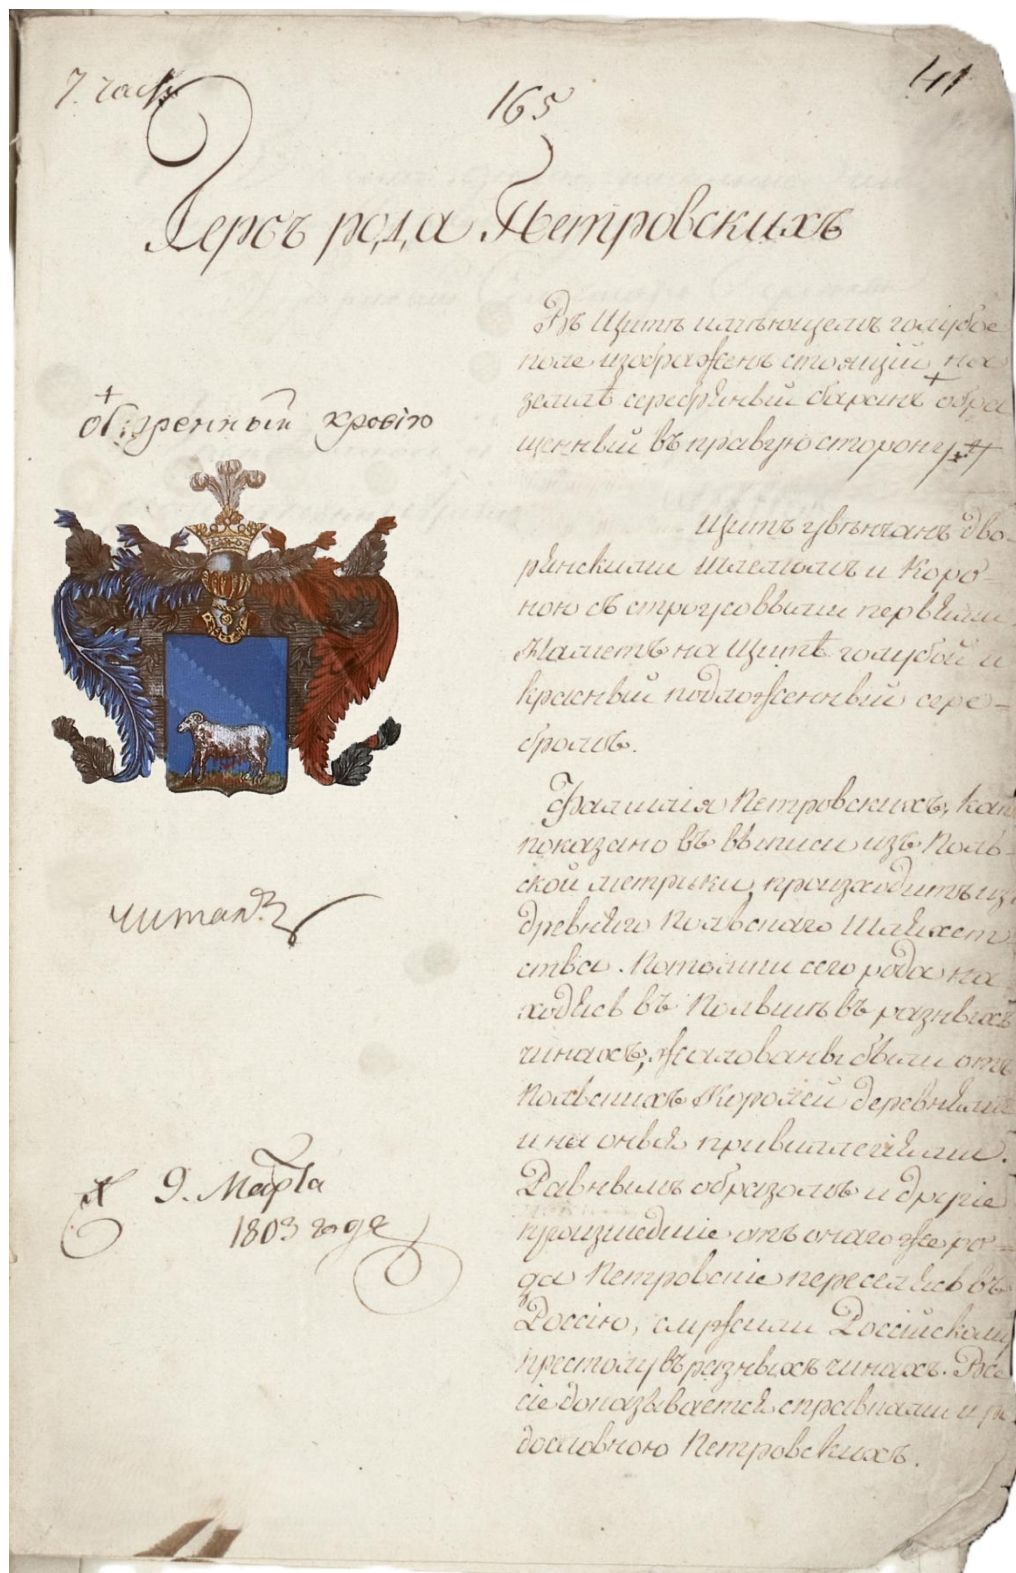 7. часть
165
41
Гербъ рода Петровскихъ
Въ Щитѣ имѣющемъ голубое
поле изображенъ стоящій на
землѣ серебяный баранъ + обра
щенный въ правую сторону. #
+
обагренный кровію
Щитъ увѣнчанъ дво-
рянскими Шлемомъ и Коро-
ною съ строусовыми перьями
Наметъ на Щитѣ голубой и
красный подложенный сере-
бромъ.
Фамилія Петровскихъ, какъ
показано въ выписи изъ Поль-
ской метрики, произходитъ изъ
древняго Польскаго Шляхет
ства. Потомки сего рода на
ходясь въ Польшѣ въ разныхъ
чинахъ, жалованы были отъ
Польскихъ Королей деревнями
и на оныя привиллегіями.
Равнымъ образомъ и другіе
произшедшіе отъ онаго же ро-
да Петровскіе переселясь въ
Россію, служили Россійскому
престолу въ разныхъ чинахъ. Все
сіе доказывается справками и ро
дословною Петровскихъ.
читалъ
9. Марта
1803 года